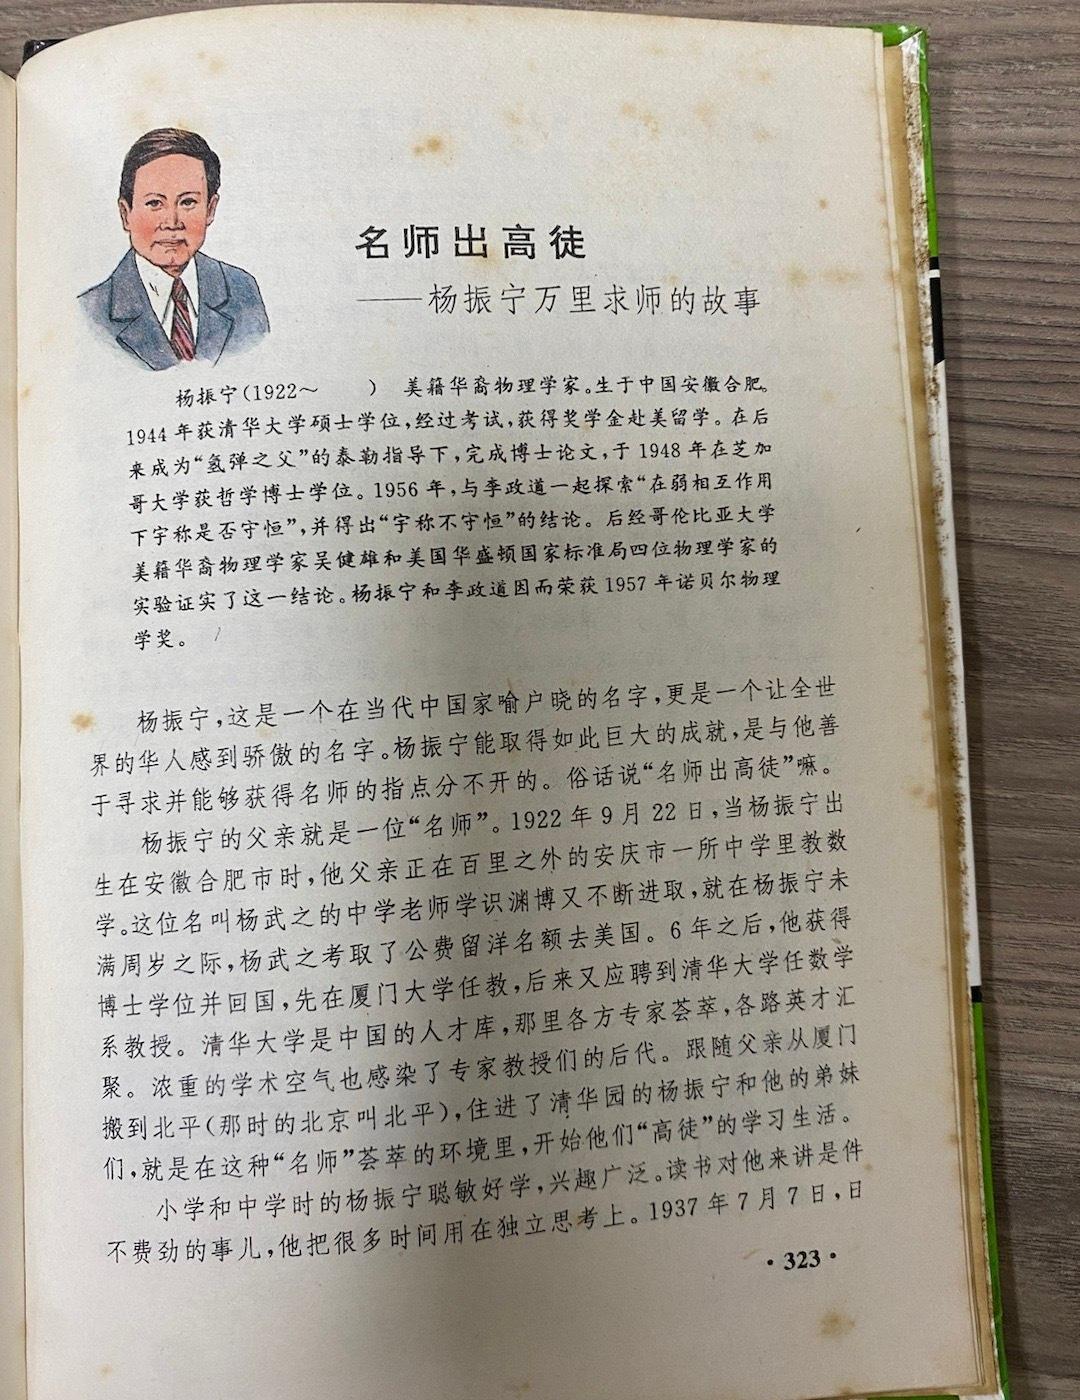 名师出高徒
——杨振宁万里求师的故事
杨振宁(1922～　　) 美籍华裔物理学家。生于中国安徽合肥。
1944年获清华大学硕士学位,经过考试,获得奖学金赴美留学。在后
来成为“氢弹之父”的泰勒指导下,完成博士论文,于1948年在芝加
哥大学获哲学博士学位。1956年,与李政道一起探索“在弱相互作用
下宇称是否守恒”,并得出“宇称不守恒”的结论。后经哥伦比亚大学
美籍华裔物理学家吴健雄和美国华盛顿国家标准局四位物理学家的
实验证实了这一结论。杨振宁和李政道因而荣获1957年诺贝尔物理
学奖。
杨振宁,这是一个在当代中国家喻户晓的名字,更是一个让全世
界的华人感到骄傲的名字。杨振宁能取得如此巨大的成就,是与他善
于寻求并能够获得名师的指点分不开的。俗话说“名师出高徒”嘛。
杨振宁的父亲就是一位“名师”。1922年9月22日,当杨振宁出
生在安徽合肥市时,他父亲正在百里之外的安庆市一所中学里教数
学。这位名叫杨武之的中学老师学识渊博又不断进取,就在杨振宁未
满周岁之际,杨武之考取了公费留洋名额去美国。6年之后,他获得
博士学位并回国,先在厦门大学任教,后来又应聘到清华大学任数学
系教授。清华大学是中国的人才库,那里各方专家荟萃,各路英才汇
聚。浓重的学术空气也感染了专家教授们的后代。跟随父亲从厦门
搬到北平(那时的北京叫北平),住进了清华园的杨振宁和他的弟妹
们,就是在这种“名师”荟萃的环境里,开始他们“高徒”的学习生活。
小学和中学时的杨振宁聪敏好学,兴趣广泛。读书对他来讲是件
不费劲的事儿,他把很多时间用在独立思考上。1937年7月7日,日
·323·